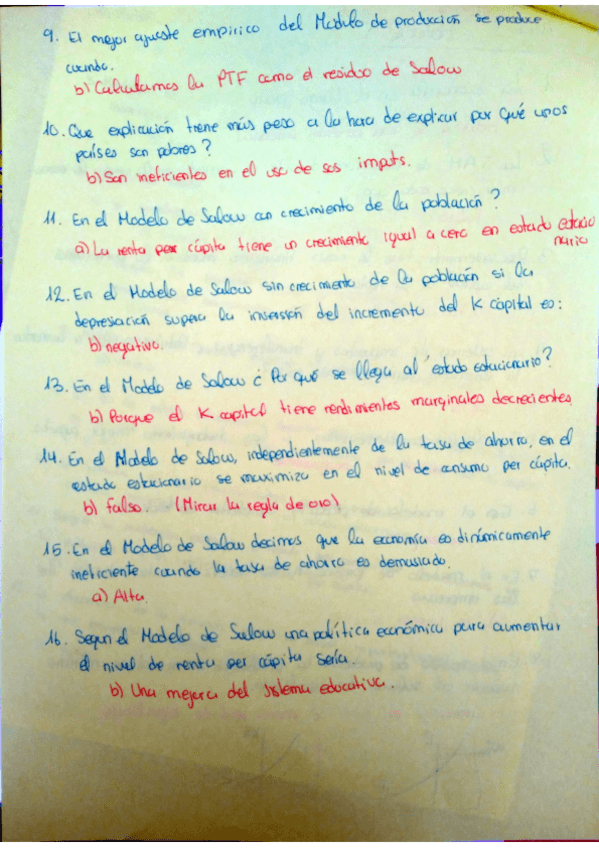 9. El mejor ajuste empirico del Modulo de producción se produce
cuando.
b) Calculamos la PTF como el residuo de Solow
10. Que explicación tiene más peso a la hora de explicar por qué unos
países son pobres?
b) Son ineficientes en el uso de sus imputs.
11. En el Modelo de Solow con crecimiento de la población?
a) La renta per cápita tiene un crecimiento igual a cero en estado estacio
nario
12. En el Modelo de Solow sin crecimiento de la población si la
depresiación supera la inversión del incremento del K capital es:
b) negativo.
13. En el Modelo de Solow ¿ Por qué se llega al estado estacionario?
b) Porque el K capital tiene rendimientos marginales decrecientes.
14. En el Modelo de Solow, independientemente de la tasa de ahorro, en el
estado estacionario se maximiza en el nivel de consumo per cápita.
b) falso. (Mirar la regla de oro)
15. En el Modelo de Solow decimos que la economía es dinámicamente
ineficiente cuando la tasa de ahorro es demasiado.
a) Alta.
16. Segun el Modelo de Solow una política económica para aumentar
el nivel de renta per cápita sería.
b) Una mejora del sistema educativo.